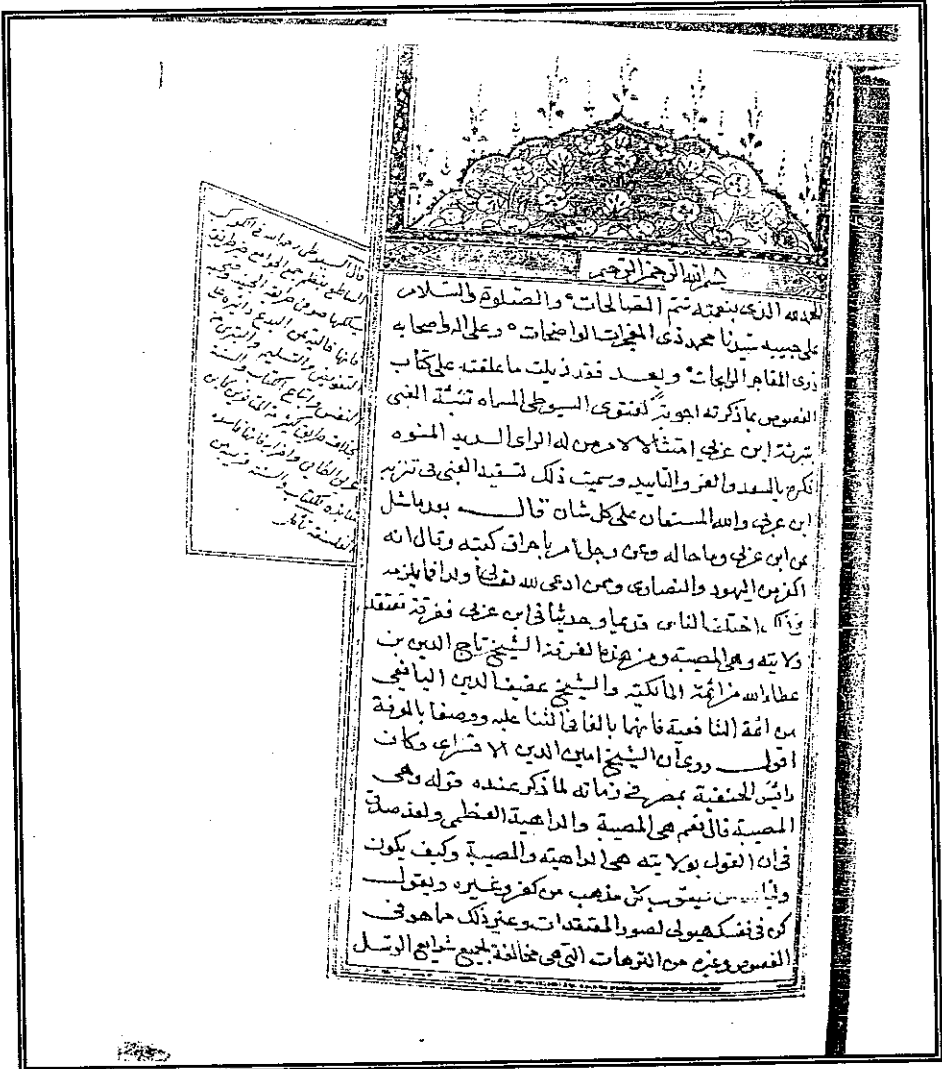 بسم الله الرحمن الرحيم
الحمد لله الذى بنعمته تتم الصالحات والصلوة والسلام
على حبيبه سيدنا محمد ذى المعجزات الواضحات وعلى اله واصحابه
ذوى المفاخر الرايحات وبعد فقد ذيلت ما علقته على كتاب
الفصوص بما ذكرته اجوبة لفتوى السيوطى المسماه تنبئة الغبى
بتبرئة ابن عربى امتثالا لامر من له الراى السديد المنوه
ذكره بالسعد والعز والتاييد وسميت ذلك تسفيه الغبى فى تنزيه
ابن عربى والله المستعان على كل شان قال بعد ما سئل
عن ابن عربى وما حاله وعن رجل امر باحراق كتبه وقال انه
اكفر من اليهود والنصارى وممن ادعى لله تعالى ولدا فما يلزمه
فى ذلك اختلف الناس قديما وحديثا فى ابن عربى ففرقة تعتقد
ولايته وهى المصيبة ومن هذه الفرقة الشيخ تاج الدين بن
عطاء الله من ائمة المالكية والشيخ عفيف الدين اليافعى
من ائمة الشافعية فانهما بالغا فى الثنا عليه ووصفا بالمعرفة
اقول روى ان الشيخ امين الدين الاقسراى وكان
رائس الحنفية بمصر فى زمانه لما ذكر عنده قوله وهى
المصيبة قال نعم هى المصيبة والداهية العظمى ولقد صدق
فى ان القول بولايته هى الداهية والمصيبة وكيف يكون
من يصوب كل مذهب من كفر وغيره ويقول
كن فى نفسك هيولى لصور المعتقدات وغير ذلك مما هو فى
الفصوص وغيره من الترهات التى هى مخالفة لجميع شرايع الرسل
قال السيوطى رحمه الله فى الكوكب
الساطع بنظم جمع الجوامع خير طريق
يسلكها صوفى طريقة الجنيد وصحبه
فانها خالية عن البدع دائرة على
التفويض والتسليم والتبرى من
النفس واتباع الكتاب والسنة
بخلاف طريق كثير من المتاخرين كابن
عربى الطائى واضرابه فانها
منابذة للكتاب والسنة قريبة من
الفلسفة تأمل